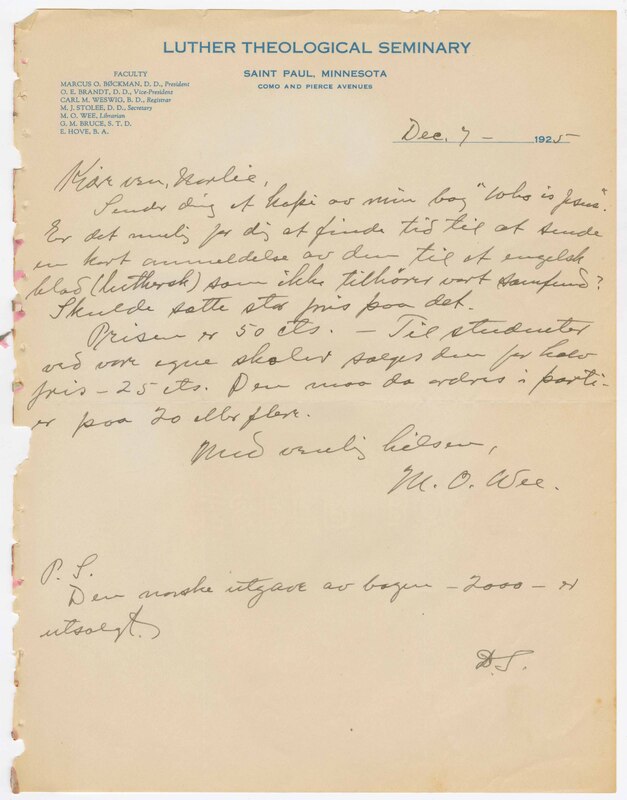 LUTHER THEOLOGICAL SEMINARY
SAINT PAUL, MINNESOTA
COMO AND PIERCE AVENUES
FACULTY
MARCUS O. BØCKMAN, D. D., President
O. E. BRANDT, D. D., Vice-President
CARL M. WESWIG, B. D., Registrar
M. J. STOLEE, D. D., Secretary
M. O. WEE, Librarian
G. M. BRUCE, S. T. D.
E. HOVE, B. A.
Dec. 7 - 1925
Kjære ven,
Sender dig et kopi av min bog "Who is Jesus".
Er det mulig for dig at finde tid til at sende
en kort anmeldelse av den til et engelsk
blad (luthersk) som ikke tilhører vort samfund?
Skulde sætte stor pris paa det.
Prisen er 50 cts. - Til studenter
ved vore egne skoler sælges den for halv
pris - 25 cts. Den maa da ordres i parti-
er paa 20 eller flere.
Med venlig hilsen,
M. O. Wee.
P. S.
Den norske utgave av bogen - 2000 - er
utsolgt.
D.S.